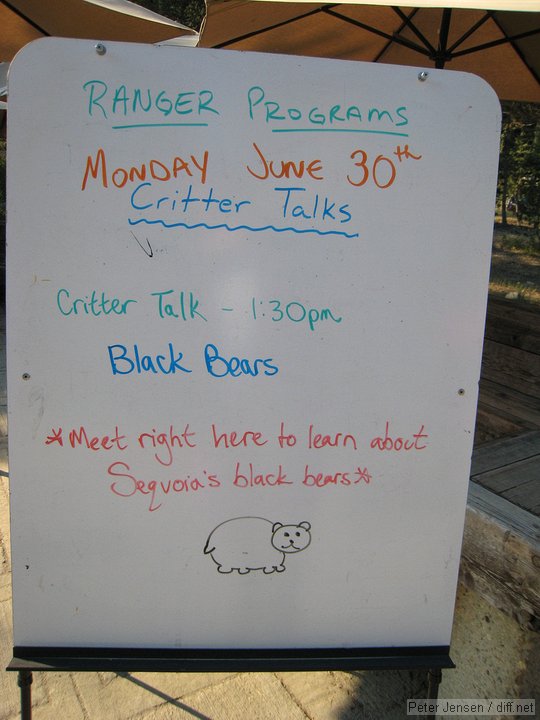 RANGER PROGRAMS
MONDAY JUNE 30th
Critter Talks
Critter Talk - 1:30pm
Black Bears
*Meet right here to learn about
Sequoia's black bears*
Peter Jensen / diff.net